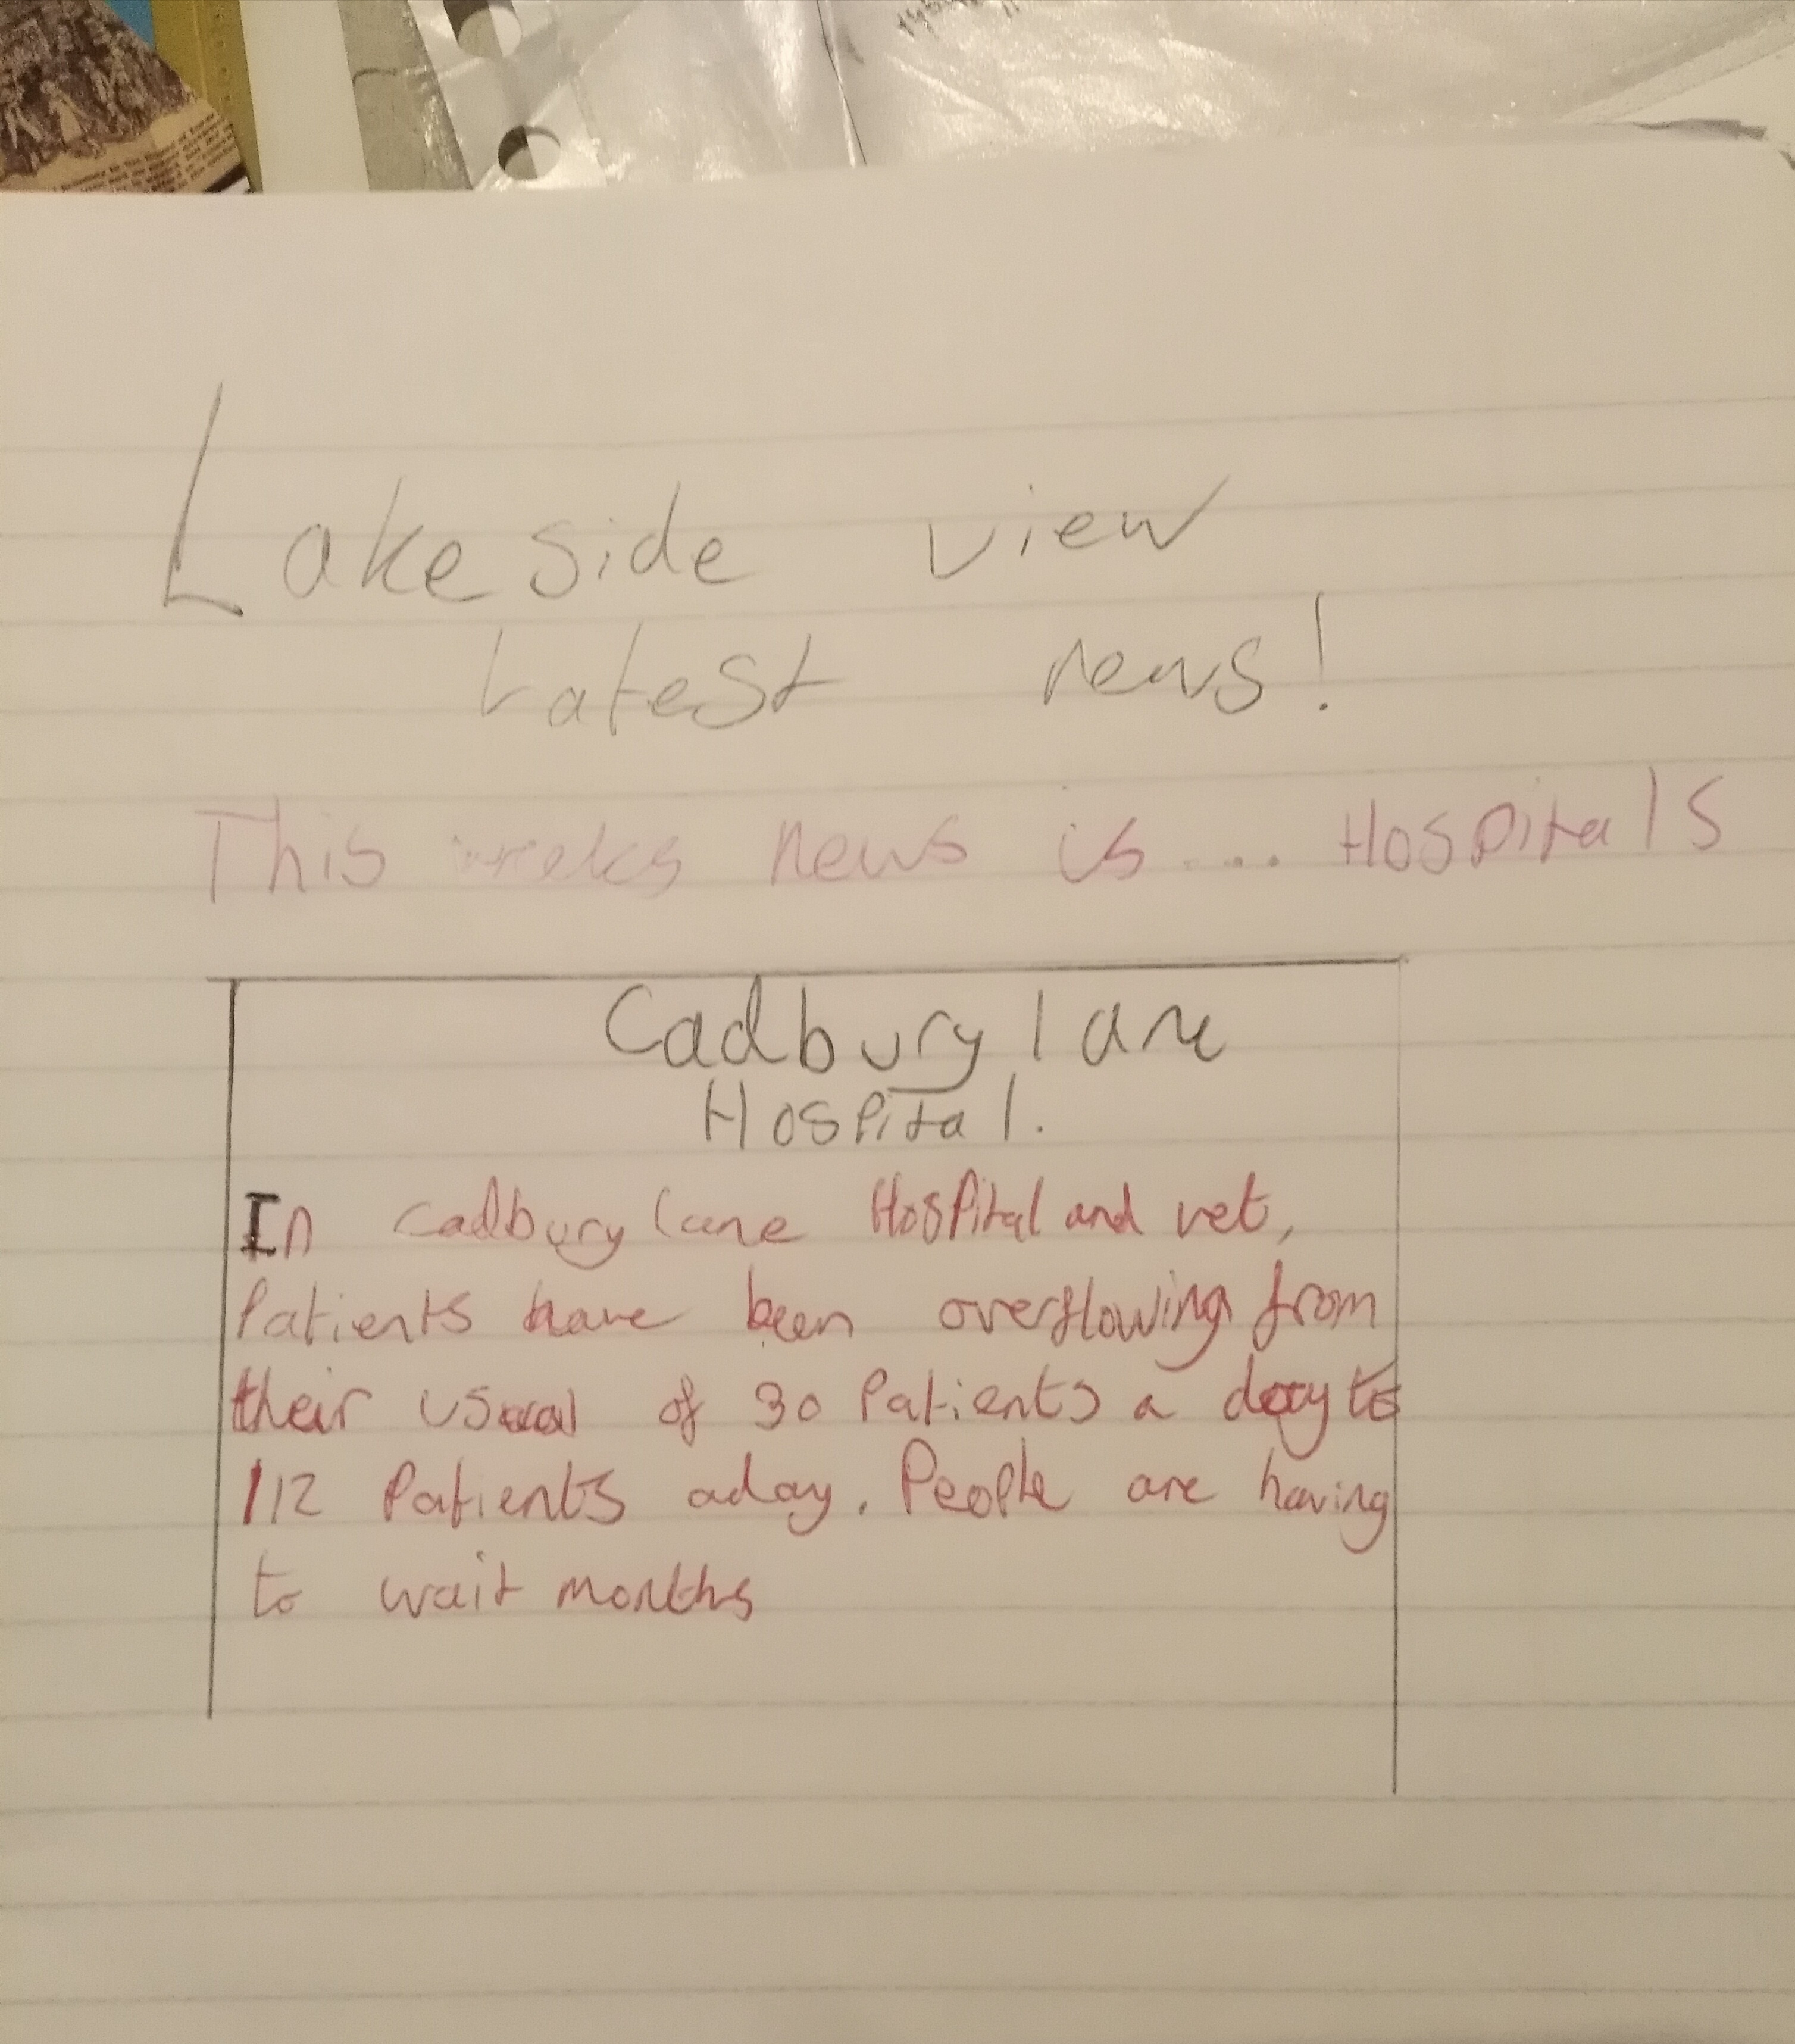 Lakeside view
Latest news!
This weeks news is.... Hospitals
Cadbury lane
Hospital.
In cadbury lane Hospital and vet,
Patients have been overflowing from
their usual of 30 Patients a day to
112 Patients aday. People are having
to wait months